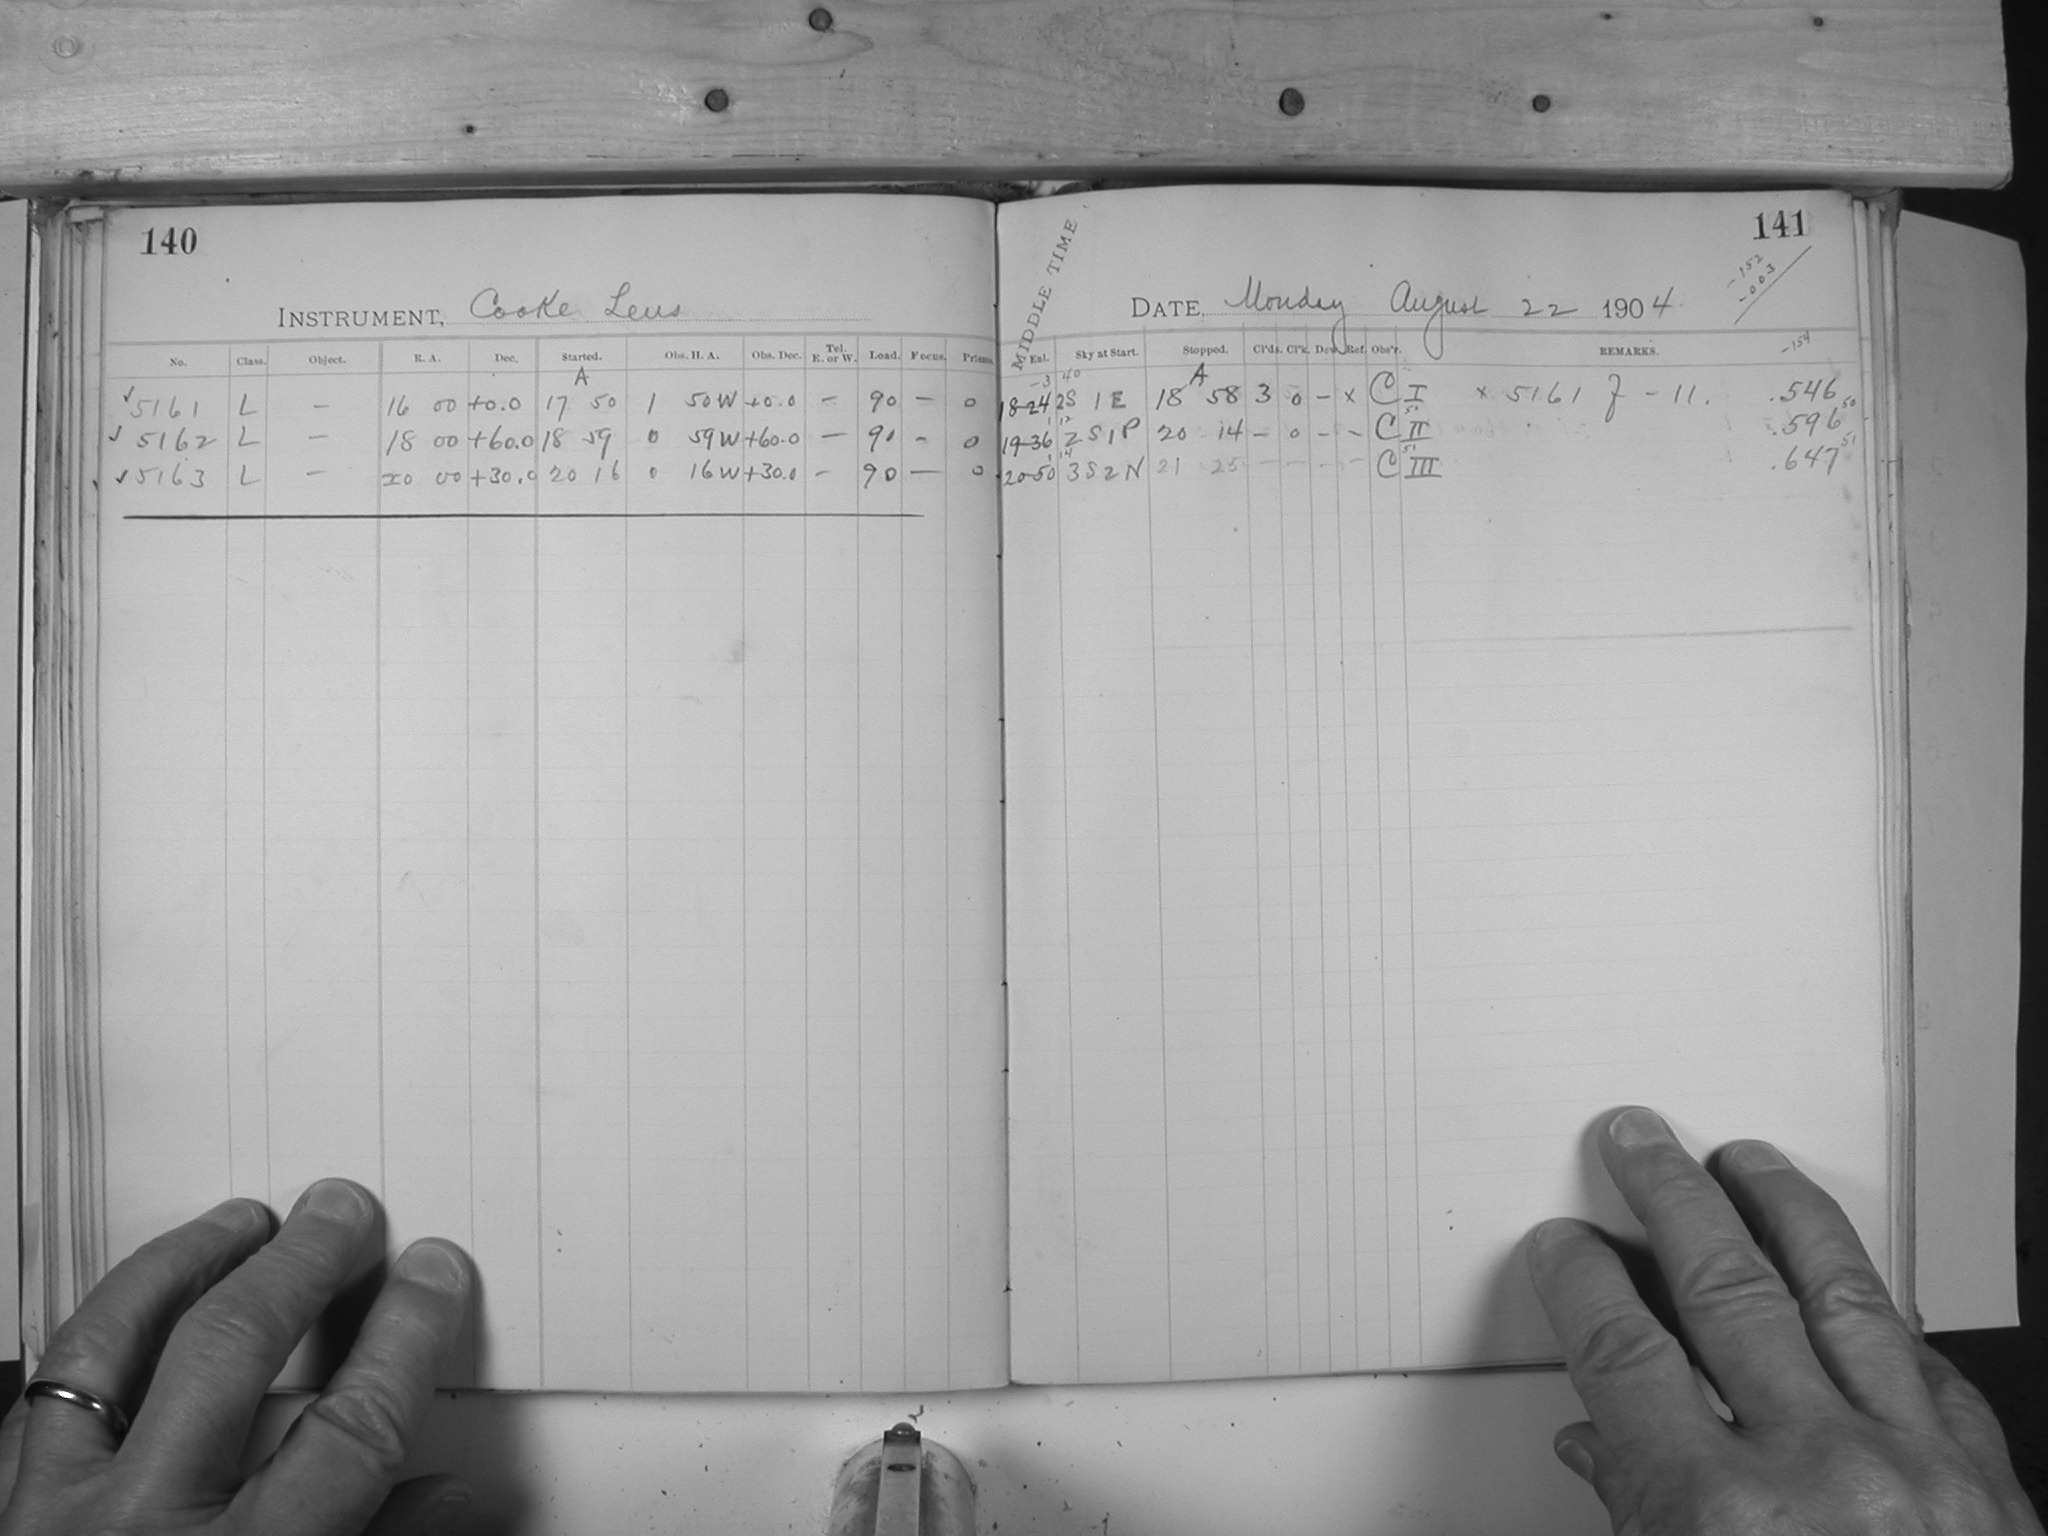 140
INSTRUMENT, Cooke Lens
No. Class. Object. R. A. Dec. Started. Obs. H. A. Obs. Dec. Tel. E. or W. Load. Focus. Prisms.
A
✓ 5161 L — 16 00 +0.0 17 50 1 50W +0.0 — 90 — 0
✓ 5162 L — 18 00 +60.0 18 59 0 59W +60.0 — 90 - 0
✓ 5163 L — 20 00 +30.0 20 16 0 16W +30.0 - 90 — 0
141
-152
-003
MIDDLE TIME
DATE, Monday August 22 1904
Sky at Start. Stopped. Cl'ds. Cl'k. Dew. Ref. Obs'r. REMARKS. -154
-3 40 A
18-24 2S 1E 18 58 3 0 - x C I x 5161 J - 11. .546
12 51 50
19-36 2S1P 20 14 - 0 - - C II .596
14 51 51
20-50 3S2N 21 25 - - - - C III .647